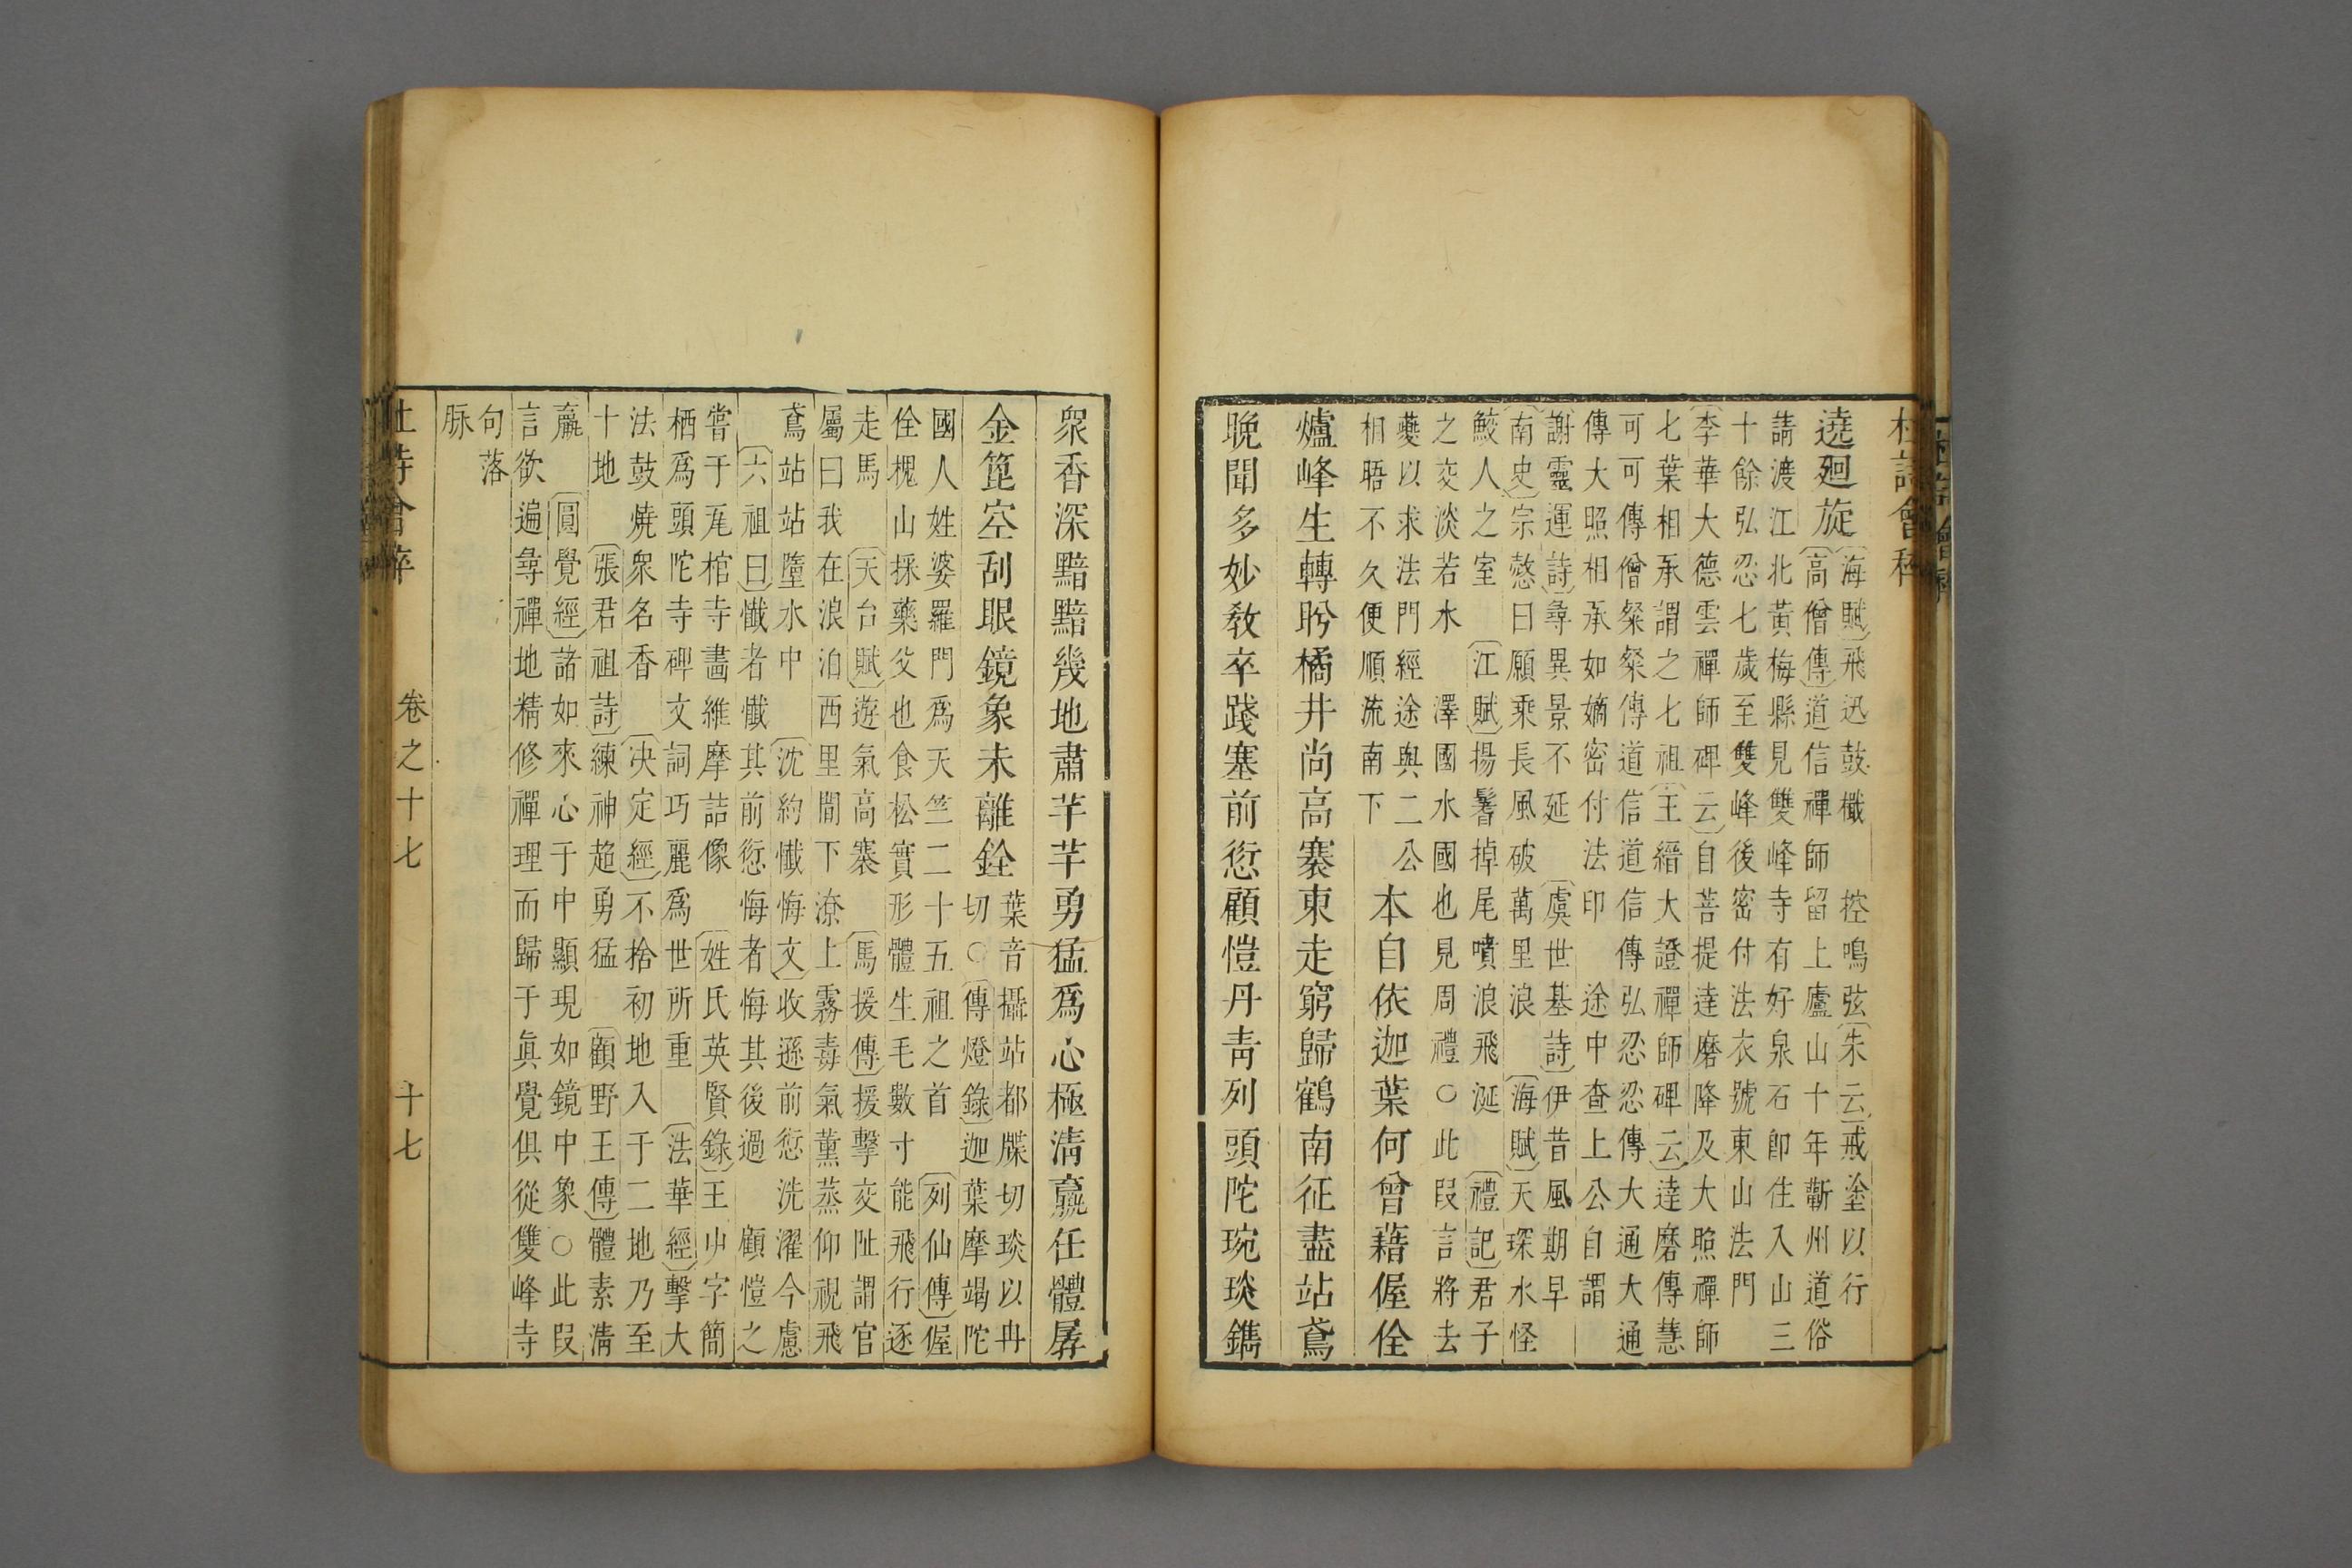 杜詩會稡
遶廻旋
海賦飛迅鼓檝　控鳴弦朱云戒塗以行
高僧傳道信禪師留上廬山十年蘄州道俗
請渡江北黃梅縣見雙峰寺有好泉石卽住入山三
十餘弘忍七歲至雙峰後密付法衣號東山法門
李華大德雲禪師碑云自菩提達磨降及大照禪師
七葉相承謂之七祖王縉大證禪師碑云達磨傳慧
可可傳僧粲粲傳道信道信傳弘忍忍傳大通大通
傳大照相承如嫡密付法印　途中查上公自謂
謝靈運詩尋異景不延　虞世基詩伊昔風期早
南史宗慤曰願乘長風破萬里浪　海賦天琛水怪
鮫人之室　江賦揚鬐掉尾噴浪飛涎　禮記君子
之交淡若水　澤國水國也見周禮○此段言將去
夔以求法門經途與二公
相晤不久便順流南下
本自依迦葉何曾藉偓佺
爐峰生轉盻橘井尚高褰東走窮歸鶴南征盡站鳶
晚聞多妙教卒踐塞前愆顧愷丹靑列頭陀琬琰鐫
衆香深黯黯幾地肅芊芊勇猛爲心極淸羸任體孱
金篦空刮眼鏡象未離銓
葉音攝站都牒切琰以冉
切○傳燈錄迦葉摩竭陀
國人姓婆羅門爲天竺二十五祖之首　列仙傳偓
佺槐山採藥父也食松實形體生毛數寸能飛行逐
走馬　天台賦遊氣高褰　馬援傳援擊交阯謂官
屬曰我在浪泊西里間下潦上霧毒氣薰蒸仰視飛
鳶站站墮水中　沈約懺悔文收遜前愆洗濯今慮
六祖曰懺者懺其前愆悔者悔其後過　顧愷之
嘗于瓦棺寺畫維摩詰像　姓氏英賢錄王屮字簡
栖爲頭陀寺碑文詞巧麗爲世所重　法華經擊大
法鼓燒衆名香　決定經不捨初地入于二地乃至
十地　張君祖詩練神超勇猛　顧野王傳體素淸
羸　圓覺經諸如來心于中顯現如鏡中象○此段
言欲遍尋禪地精修禪理而歸于眞覺俱從雙峰寺
句落
脉
杜詩會稡　卷之十七　十七